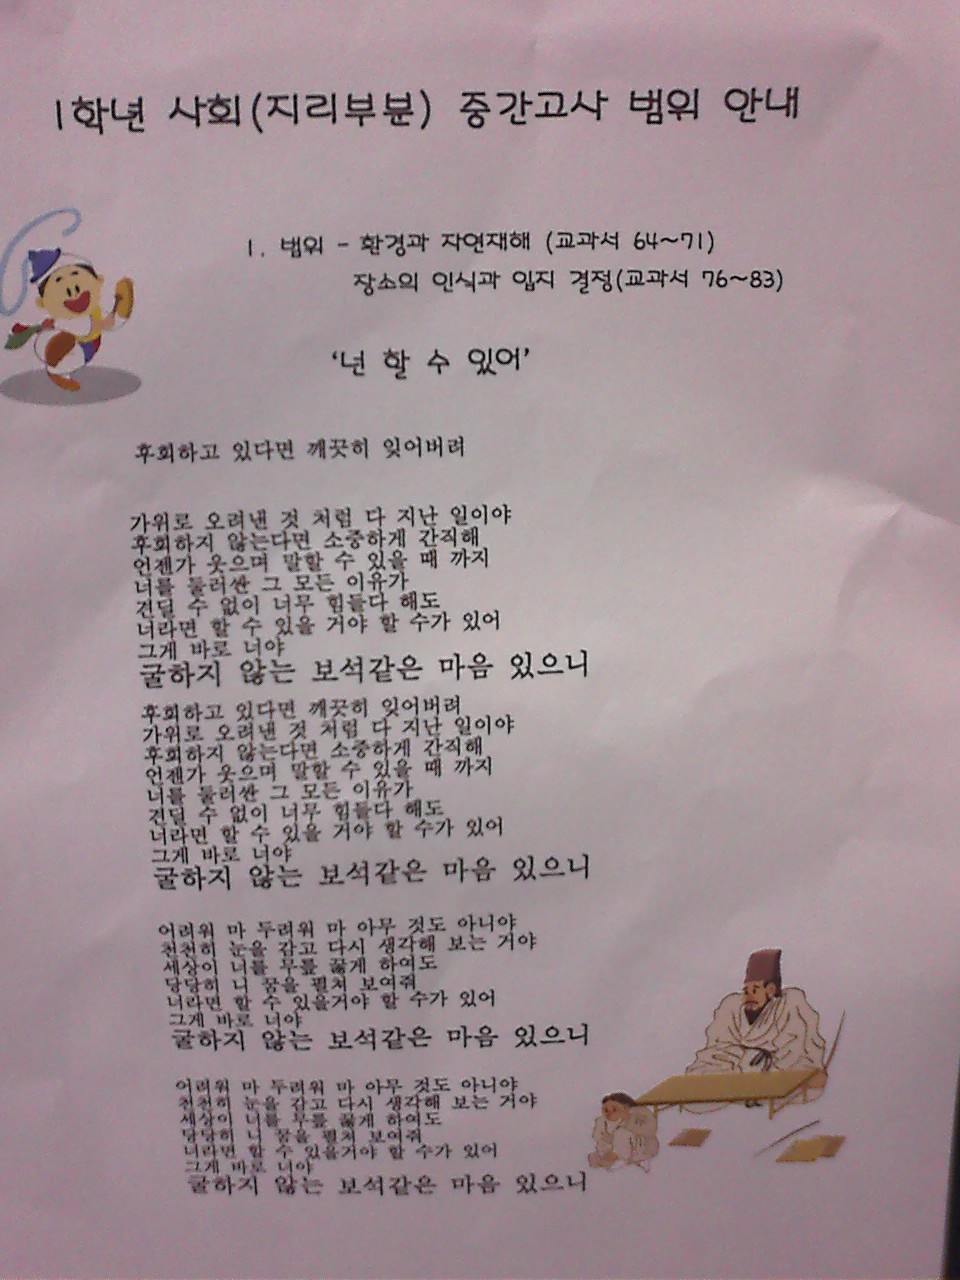 1학년 사회(지리부분) 중간고사 범위 안내
1. 범위 - 환경과 자연재해 (교과서 64~71)
장소의 인식과 입지 결정(교과서 76~83)
‘넌 할 수 있어’
후회하고 있다면 깨끗히 잊어버려
가위로 오려낸 것 처럼 다 지난 일이야
후회하지 않는다면 소중하게 간직해
언젠가 웃으며 말할 수 있을 때 까지
너를 둘러싼 그 모든 이유가
견딜 수 없이 너무 힘들다 해도
너라면 할 수 있을 거야 할 수가 있어
그게 바로 너야
굴하지 않는 보석같은 마음 있으니
후회하고 있다면 깨끗히 잊어버려
가위로 오려낸 것 처럼 다 지난 일이야
후회하지 않는다면 소중하게 간직해
언젠가 웃으며 말할 수 있을 때 까지
너를 둘러싼 그 모든 이유가
견딜 수 없이 너무 힘들다 해도
너라면 할 수 있을 거야 할 수가 있어
그게 바로 너야
굴하지 않는 보석같은 마음 있으니
어려워 마 두려워 마 아무 것도 아니야
천천히 눈을 감고 다시 생각해 보는 거야
세상이 너를 무릎 꿇게 하여도
당당히 니 꿈을 펼쳐 보여줘
너라면 할 수 있을거야 할 수가 있어
그게 바로 너야
굴하지 않는 보석같은 마음 있으니
어려워 마 두려워 마 아무 것도 아니야
천천히 눈을 감고 다시 생각해 보는 거야
세상이 너를 무릎 꿇게 하여도
당당히 니 꿈을 펼쳐 보여줘
너라면 할 수 있을거야 할 수가 있어
그게 바로 너야
굴하지 않는 보석같은 마음 있으니